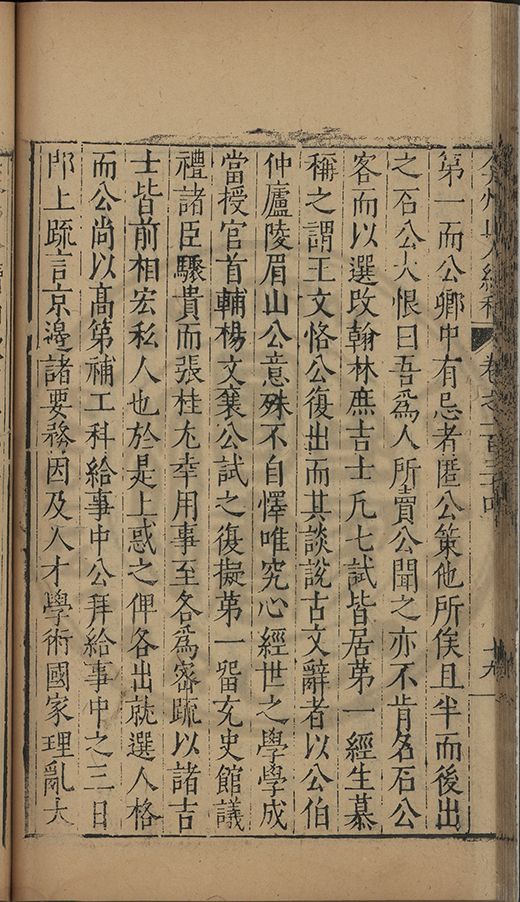 弇州山人續稿 卷之一百三十四 十九
第一而公卿中有忌者匿公策他所俟且半而後出
之石公大恨曰吾爲人所賣公聞之亦不肯名石公
客而以選改翰林庶吉士凡七試皆居第一經生慕
稱之謂王文恪公復出而其談說古文辭者以公伯
仲廬陵眉山公意殊不自懌唯究心經世之學學成
當授官首輔楊文襄公試之復擬第一留充史館議
禮諸臣驟貴而張桂尤幸用事至各爲密疏以諸吉
士皆前相宏私人也於是上惑之俾各出就選人格
而公尚以高第補工科給事中公拜給事中之三日
卽上疏言京邊諸要務因及人才學術國家理亂大